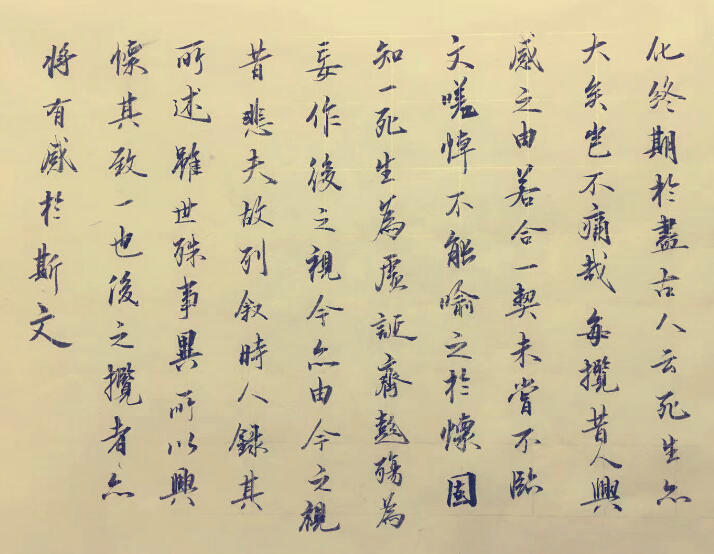 化終期於盡古人云死生亦
大矣豈不痛哉每攬昔人興
感之由若合一契未嘗不臨
文嗟悼不能喻之於懷固
知一死生為虛誕齊彭殤為
妄作後之視今亦由今之視
昔悲夫故列叙時人錄其
所述雖世殊事異所以興
懷其致一也後之攬者亦
将有感於斯文